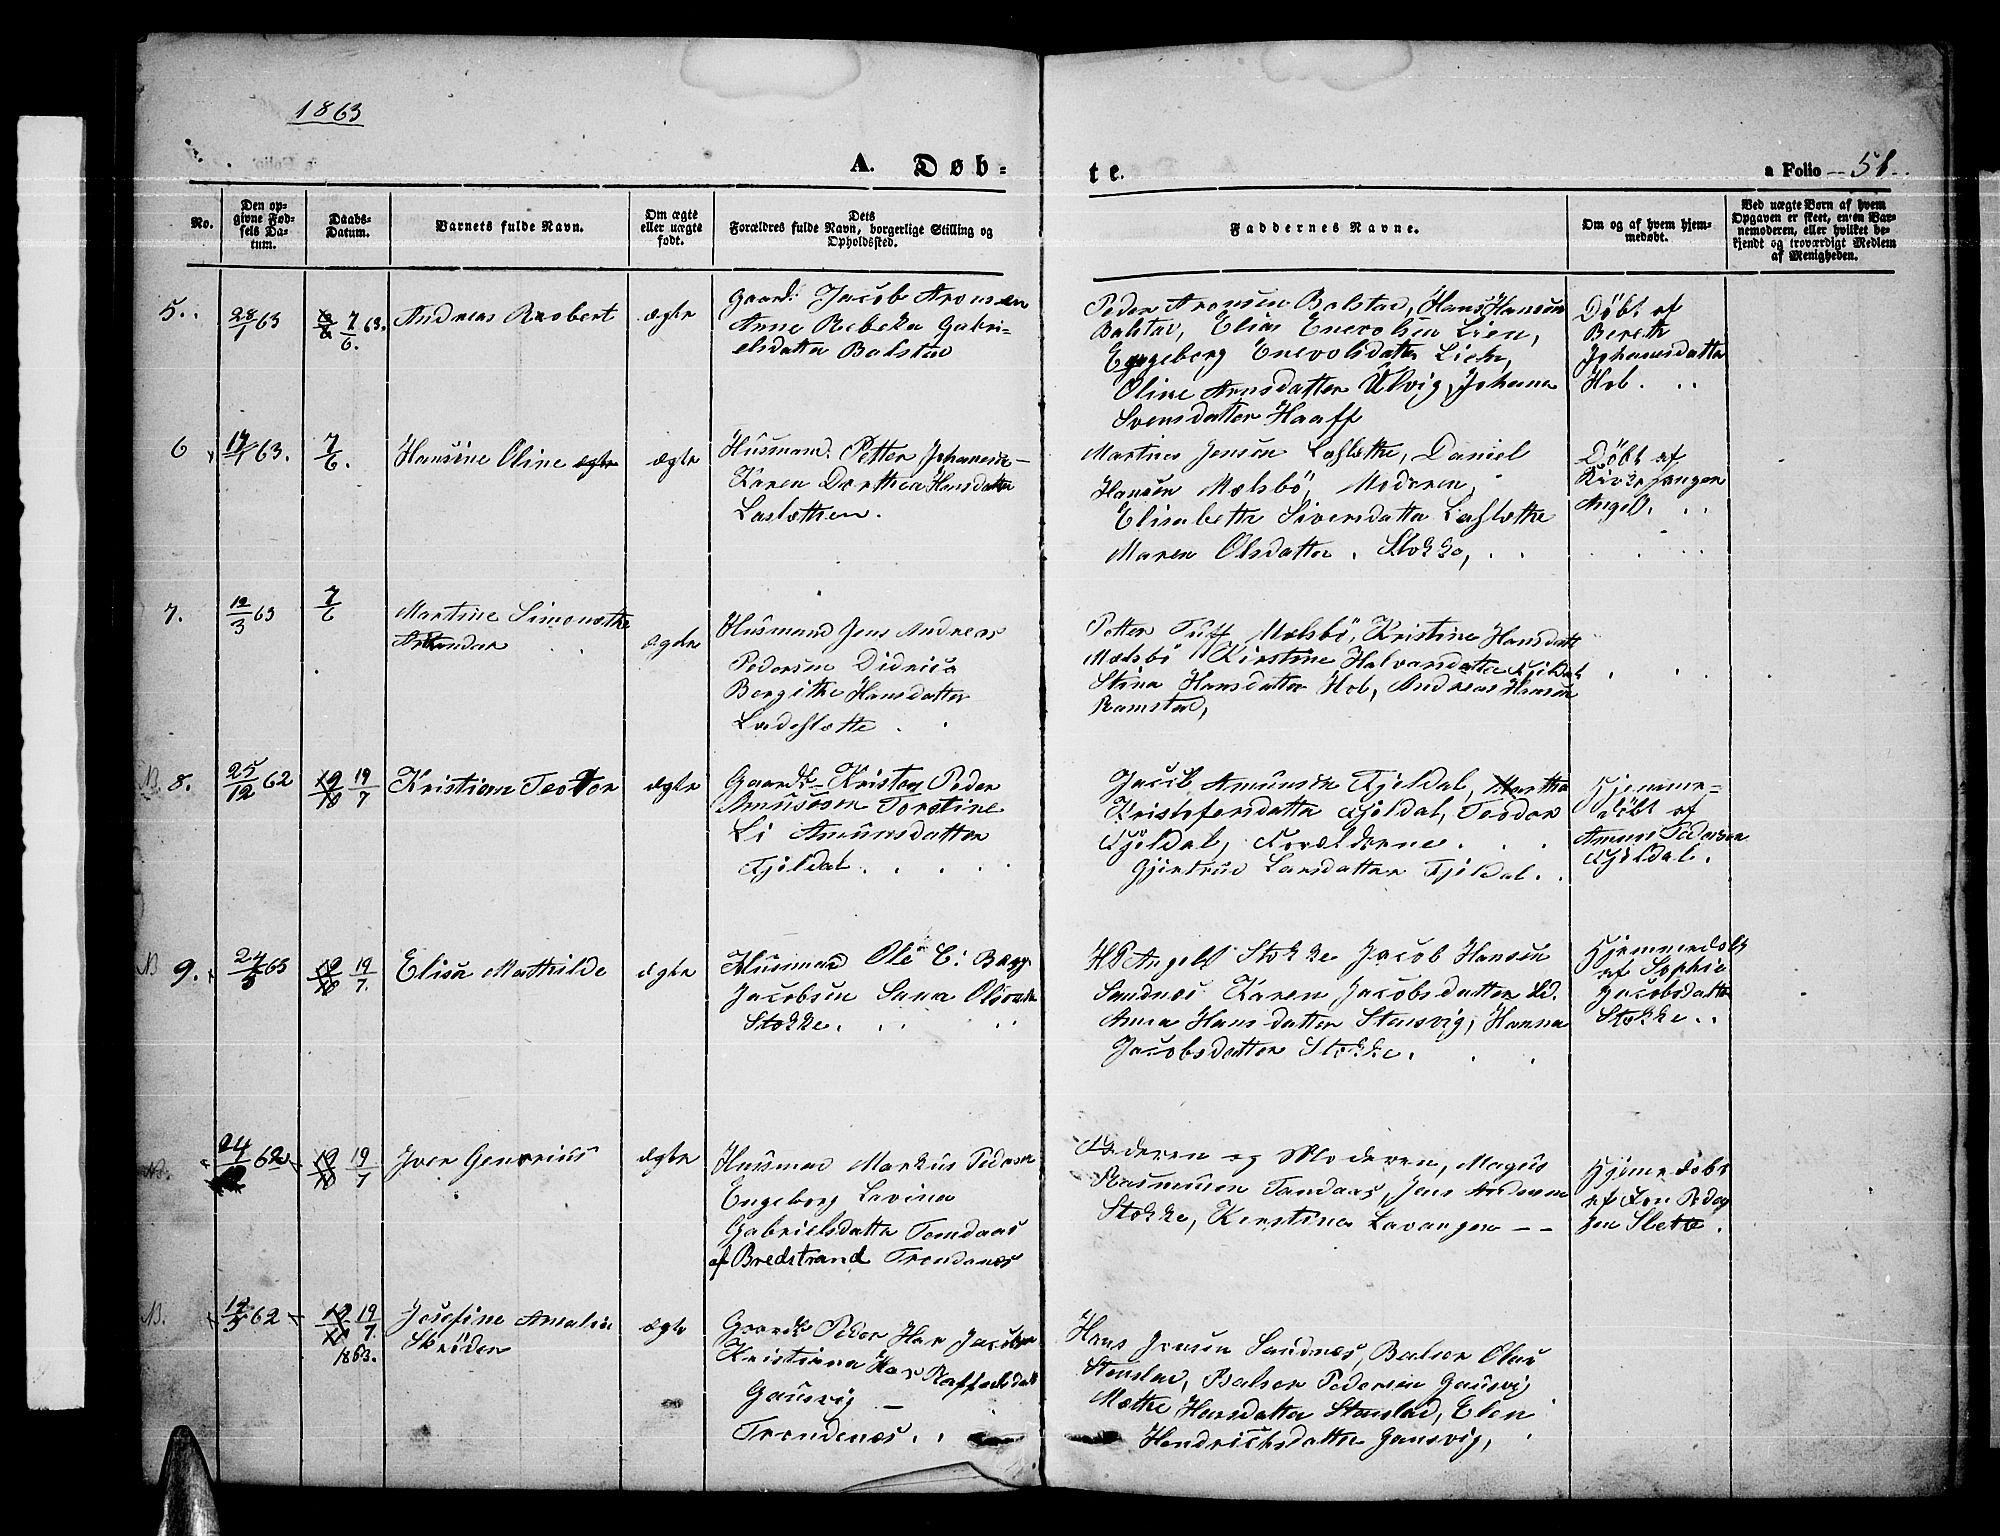 1863
A. Døb-
te.
a Folio 51.
No.
Den op-
givne Fød-
sels Da-
tum.
Daabs-
Datum.
Barnets fulde Navn.
Om ægte
eller uægte
født.
Dets
Forældres fulde Navn, borgerlige Stilling og
Opholdssted.
Faddernes Navne.
Om og af hvem hjem-
medøbt.
Ved uægte Børn af hvem
Opgaven er skeet, enten Bar-
nemoderen, eller hvilket be-
kjendt og troværdigt Medlem
af Menigheden.
5.
28/1 63
7/6 63.
Andreas Robert
ægte
Gaard: Jacob Aronsen
Anne Rebeka Gabri-
elsdatter Balstad
Peder Aronsen Balstad, Hans Hansen
Balstad, Elias Enevolsen Lien,
Engeborg Enevolsdatter Lien,
Oline Arnsdatter Ülvig, Johana
Svensdatter Haaff
Döbt af
Bereth
Johansdatter
Hol.
6
17/1 63.
7/6.
Hansine Oline
ægte
Husmand: Petter Johansen
Karen Dorthea Hansdatter
Laslætten.
Martines Jensen Laslette, Daniel
Hansen Mælsbö, Moderen,
Elisabeth Siversdatter Laslætte
Maren Olsdatter. Stokke,
Döbt af
Kirkesanger
Angell.
7.
12/3 63
7/6
Martine Simonette
ægte
Husmand Jens Andreas
Pedersen Didrica
Bergitte Hansdatter
Ladeslætte
Petter Tuff Mælsbö, Kristine Hansdatt
Mælsbö Kirstine Halvarsdatter Fjeldal
Stina Hansdatter Hol, Andreas Hansen
Ramstad,
N 8.
25/12 62
19/7
Kristian Teodor
ægte
Gaardb. Kristen Peder
Amundsen Torstine
Li Amundsdatter
Fjeldal.
Jacob Amunsen Fjeldal, Martha
Kristofersdatter Fjeldal, Teodor
Fjeldal, Forælderne.
Gjertrud Larsdatter Fjeldal.
Hjemme-
döbt af
Amund Pedersen
Fjeldal.
N 9.
63
19/7.
Elisa Mathilde
ægte
Husmand Ole C: Bagg
Jacobsen Sara Olsdatter
Stokke.
HP Angell Stokke Jacob Hansen
Sandnes Karen Jacobsdatter Ibd.
Anna Hansdatter Stensvig, Hanna
Jacobsdatter Stokke.
Hjemmedöbt
af Sophie
Jacobsdatter
Stokke.
24/12 62
19/7
Iver Genorius
ægte
Husmand Markus Pedersen
Engeborg Lavina
Gabrielsdatter Tondaas
af Bredstrand Trondenæs
Faderen og Moderen, Magus
Rasmussen Tandaas, Jens Andersen
Stokke, Kerstina Lavangen
Hjemedöbt
af Jon Peder
sen Slette.
N.
62
19/7.
1863.
Josefine Amalia
Skröder
ægte
Gaardb. Peder Har Jacobsen
Kristiana Har Raffaelsdatt
Gausvig
Trondenæs.
Hans Jensen Sandnæs, Balser Olsen
Stenslad, Balser Pedersen Gausvig
Mætte Hansdatter Stenslad, Elen
Hendrichsdatter Gausvig,